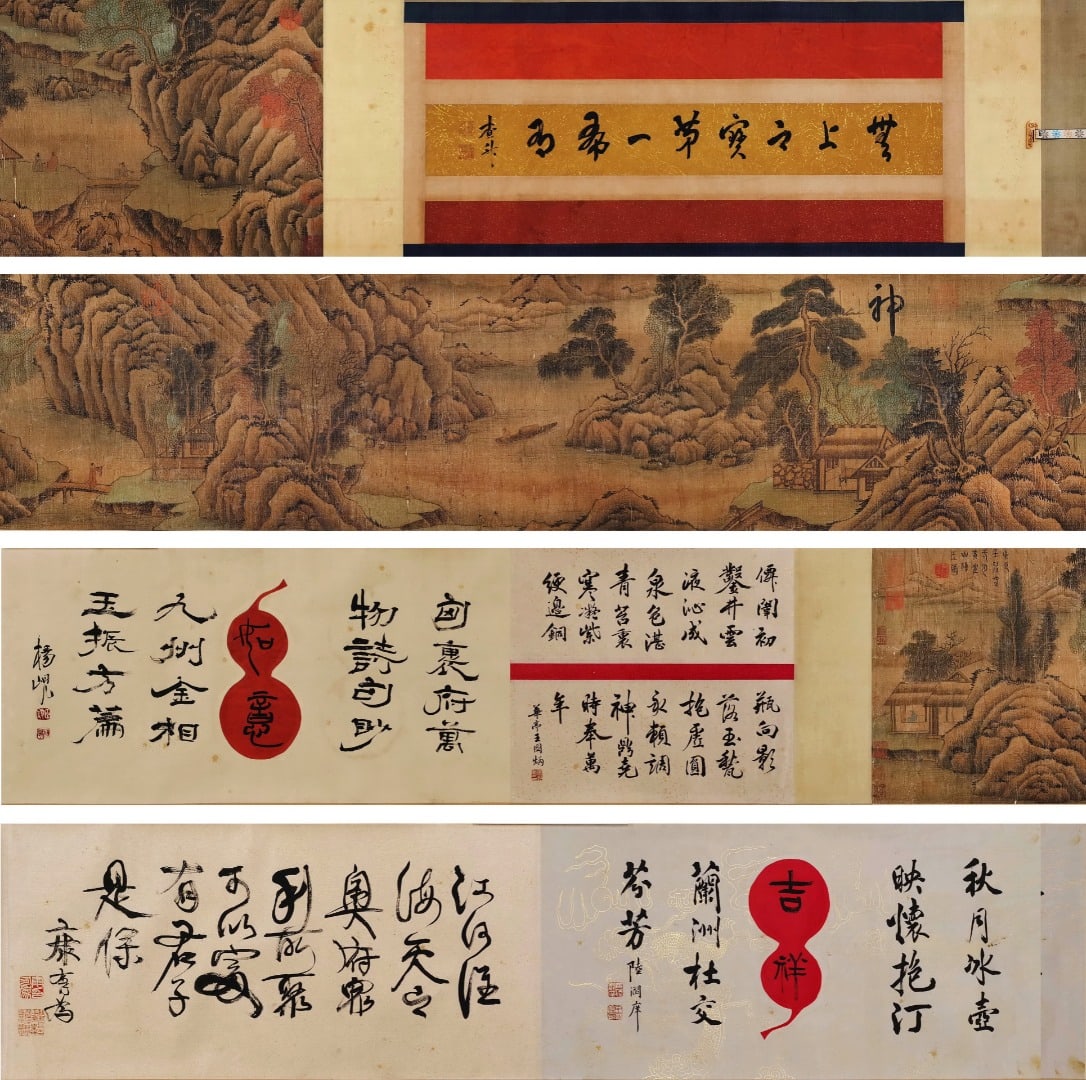 無上之寶第一希有
查昇
神
僊闈初
鑿井雲
液沁成
泉色湛
青苔裏
寒凝紫
綆邊銅
瓶向影
落玉甃
抱虛圓
永賴調
神鼎堯
時奉萬
年
華亭王圖炳
匈裏府萬
物詩句眇
如意
九州金相
玉振方蕭
楊峴
秋月冰壺
映懷抱汀
吉祥
蘭洲杜交
芬芳
陸潤庠
江河淮
海天之
奧府眾
利所聚
可以富
有君子
是保
康有為